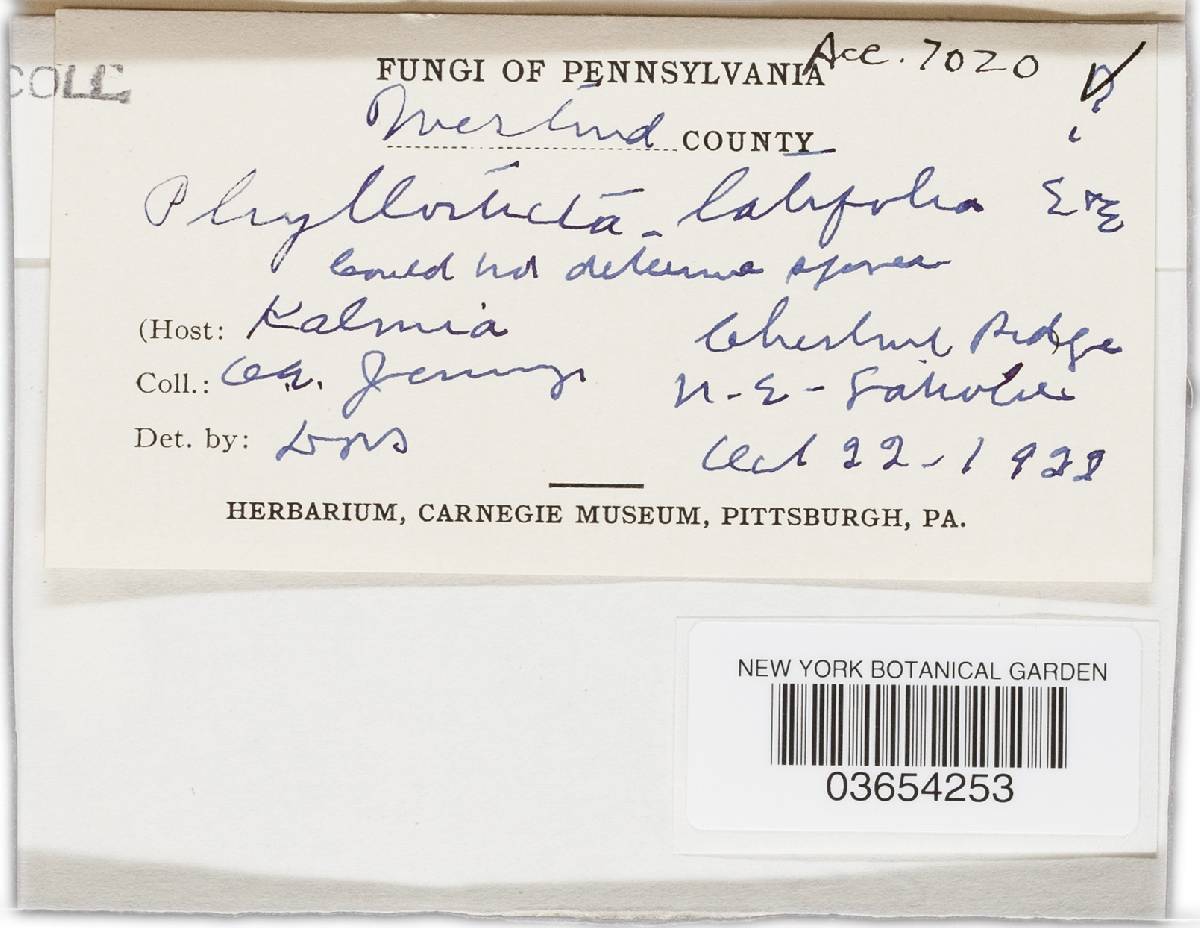 COLL.
Acc. 7020
FUNGI OF PENNSYLVANIA
COUNTY
Phyllosticta latifolia E & E
Could not determine spores
(Host: Kalmia
Chestnut Ridge
Coll.: Jennings
N. E.
Det. by:
Oct 22 - 1922
HERBARIUM, CARNEGIE MUSEUM, PITTSBURGH, PA.
NEW YORK BOTANICAL GARDEN
03654253